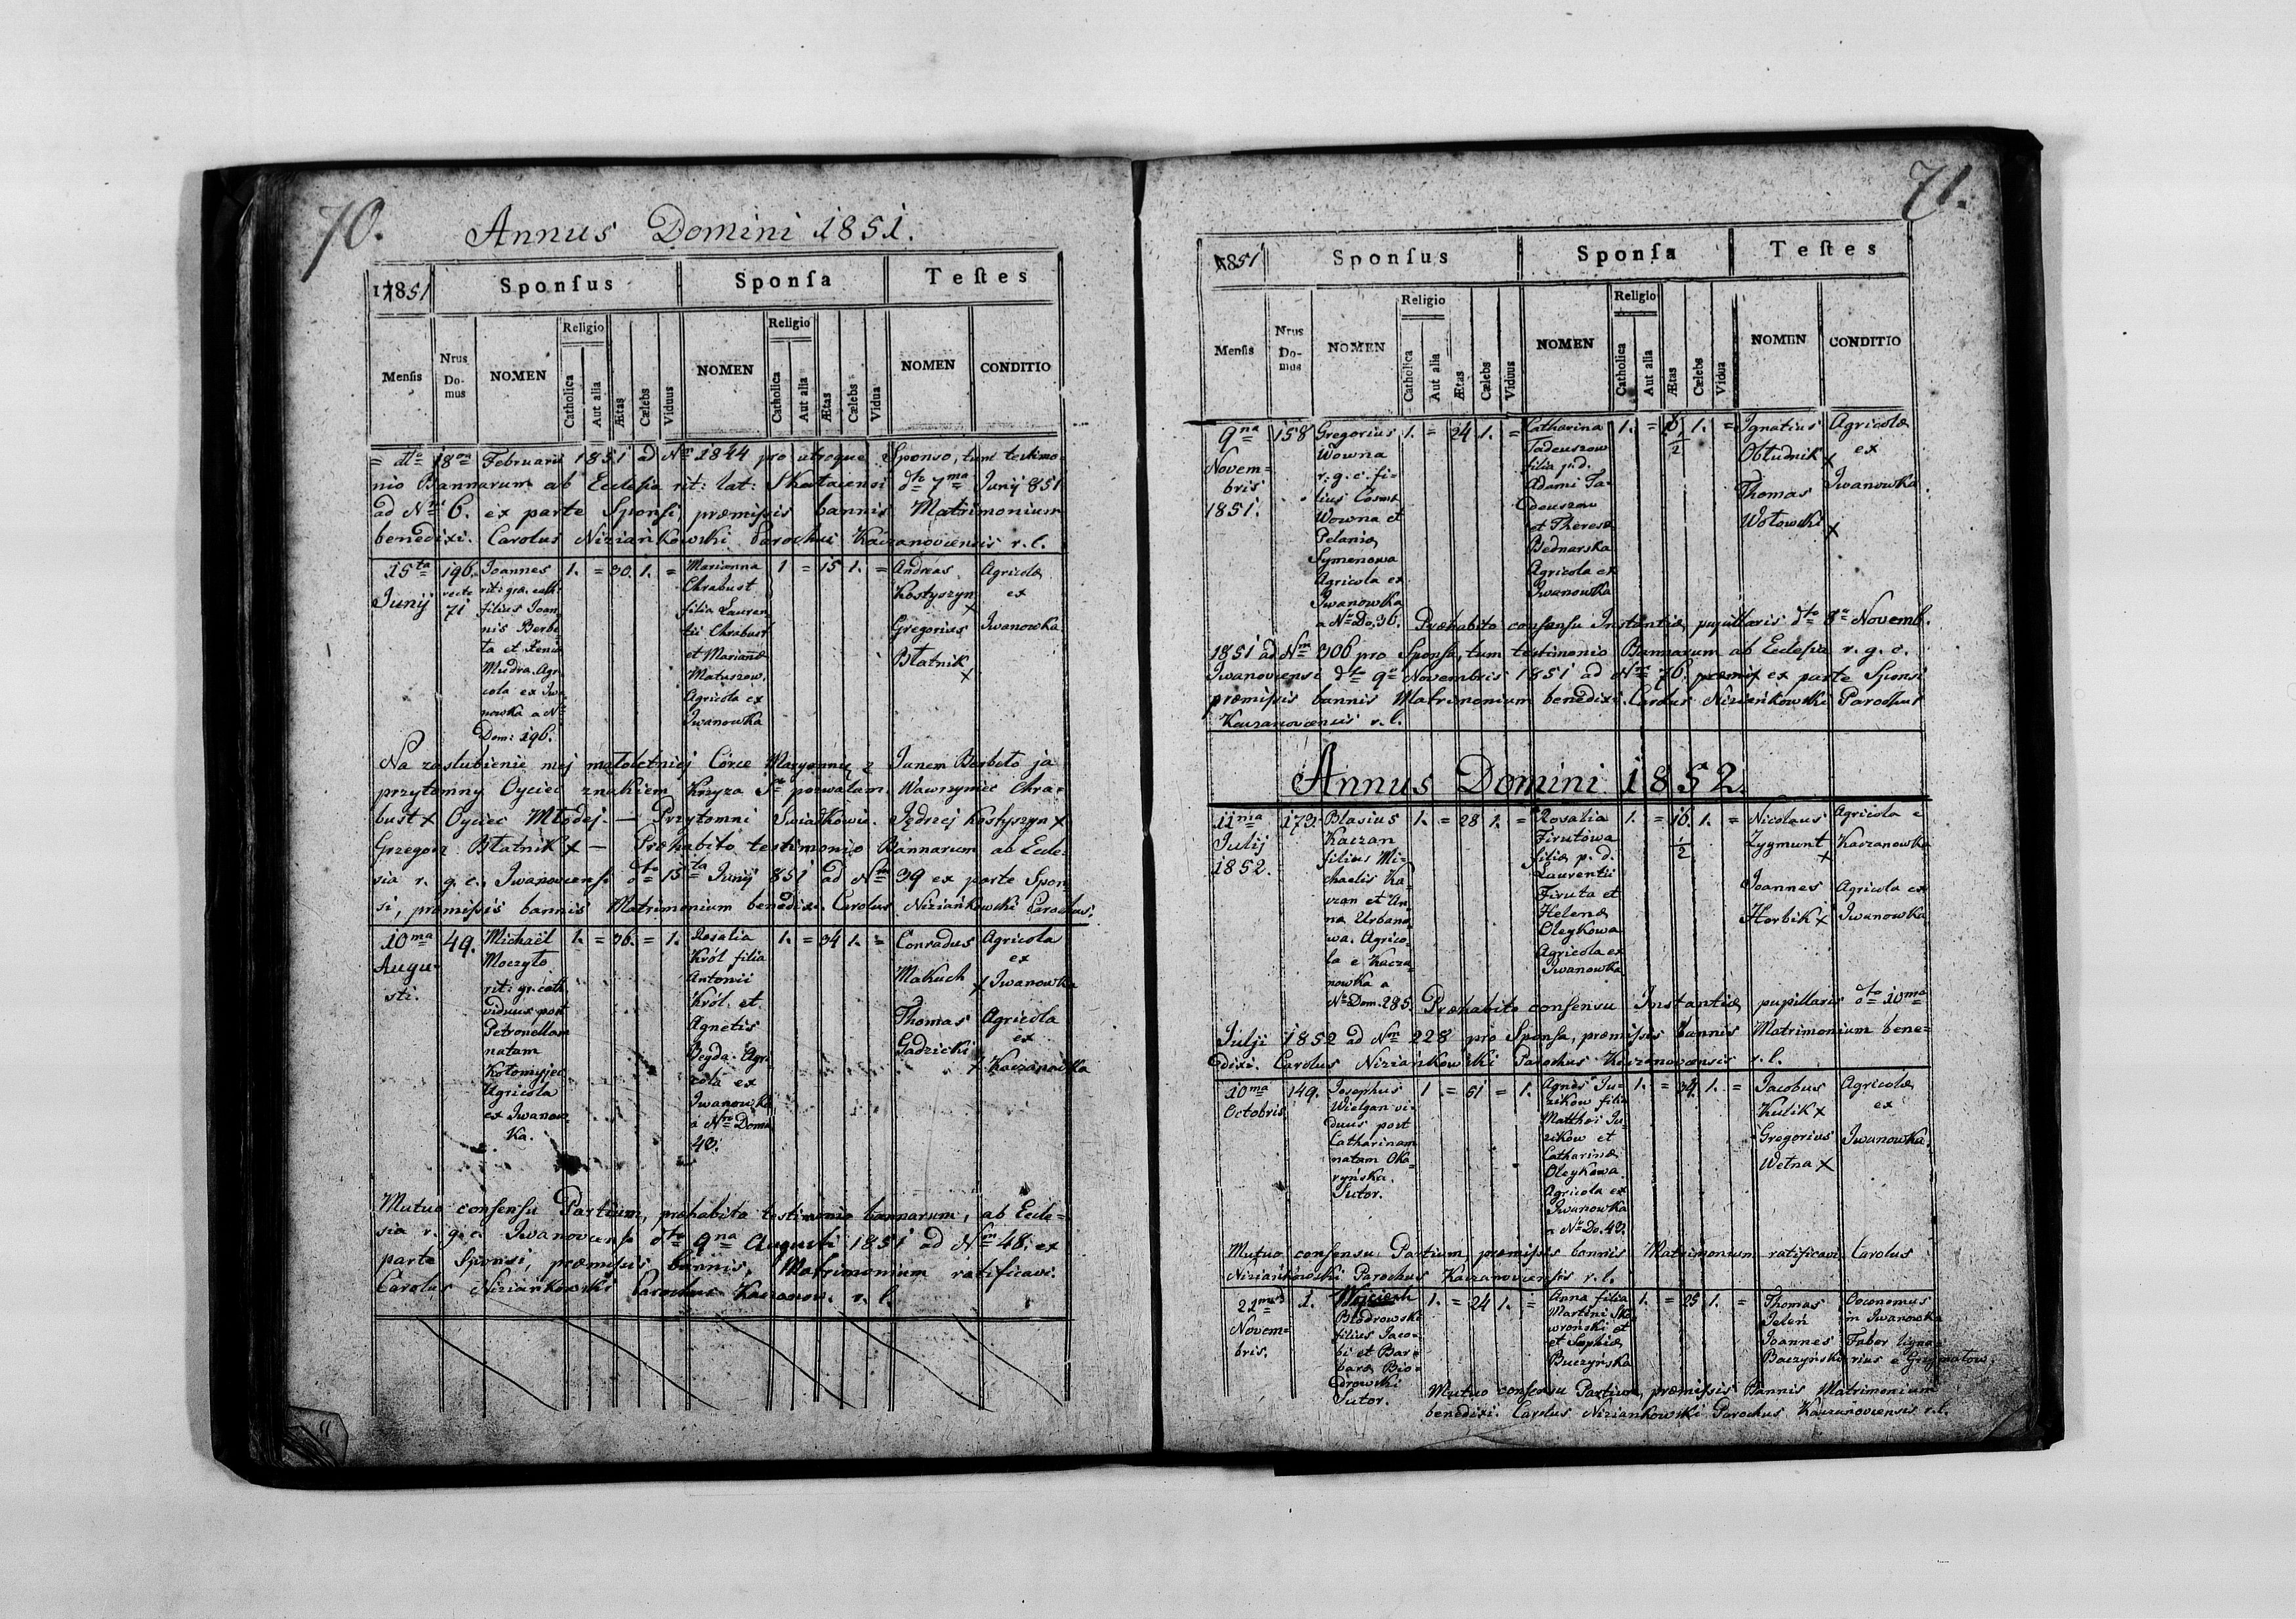 70.
Annus Domini 1851.
1851
Sponſus
Sponſa
Teſtes
Menſis
Nrus Do-mus
NOMEN
Religio
Catholica
Aut alia
Ætas
Cælebs
Viduus
NOMEN
Religio
Catholica
Aut alia
Ætas
Cælebs
Vidua
NOMEN
CONDITIO
= dto 18va Februarii 1851 ad Nrm 1844 pro utroque Sponso, tum testimo-
nio Bannarum ab Ecclesia rit: lat: dto 7ma Junij 851
ad Nrm 6. ex parte Sponsi præmissis bannis Matrimonium
benedixi. Carolus Niziańkowski Parochus Kaczanoviensis r. l.
15ta
Junij
196.
recte
71
Joannes
rit: gra. cath:
filius Joan
nis Berbe
ta et Xenia
Mudra. Agri
cola ex Jwa
nowka a No
Dom: 196.
1. = 30. 1. =
Marianna
Chrabust
filia Lauren
tii Chrabust
et Marianæ
Matuszow.
Agricola ex
Jwanowka
1 = 15 1. =
Andreas
Kostyszyn
x
Gregorius
Błatnik
x
Agricolæ
ex
Jwanowka
Na zaslubienie mej małoletniej Córce Maryannie z Janem Berbeto ja
przytomny Oyciec znakiem Krzyza Sgo pozwalam. Wawrzyniec Chra-
bust x Oyciec Młodej. — Przytomni Swiadkowie. Jędrzej Kostyszyn x
Grzegorz Błatnik x — Præhabito testimonio Bannarum ab Eccle-
sia r. g. c. Jwanoviensi dto 15ta Junij 851 ad Nrm 39 ex parte Spon
si, præmissis bannis Matrimonium benedixi. Carolus Niziańkowski Parochus.
10ma
Augu-
sti.
49.
Michaël
Moczyło
rit: gr. cath
viduus post
Petronellam
natam
Kołomyjec
Agricola
ex Jwanow
ka.
1. = 36. = 1.
Rosalia
Król filia
Antonii
Król et
Agnetis
Beyda. Agri
cola ex
Jwanowka
a Nro Domu
48.
1. = 34 1. =
Conradus
Makuch
x
Thomas
Gadzicki
x
Agricola
ex
Jwanowka
Agricola
ex
Kaczanowka
Mutuo consensu Partium, præhabito testimonio bannarum, ab Eccle-
sia r. g. c. Jwanoviensi dto 9na Augusti 1851 ad Nrm 48. ex
parte Sponsi, præmissis bannis, Matrimonium ratificavi.
Carolus Niziańkowski Parochus Kaczanov. r. l.
71.
1851
Sponſus
Sponſa
Teſtes
Menſis
Nrus Do-mus
NOMEN
Religio
Catholica
Aut alia
Ætas
Cælebs
Viduus
NOMEN
Religio
Catholica
Aut alia
Ætas
Cælebs
Vidua
NOMEN
CONDITIO
9na
Novem-
bris
1851.
158
Gregorius
Wowna
r. g. c. fi-
lius Cosmæ
Wowna et
Pelaniæ
Symenowa
Agricola ex
Jwanowka
a No Do. 36.
1. = 24 1. =
Catharina
Tadeuszow
filia p. d.
Adami Ta-
deuszow
et Theresæ
Bednarska
Agricola ex
Jwanowka
1. = 1/2 1. =
Jgnatius
Obłudnik x
Thomas
Wołowski
x
Agricolæ
ex
Jwanowka
Præhabito consensu Instantiæ pupillaris dto 8va Novemb.
1851 ad Nrm 306 pro Sponsa, tum testimonio Bannarum ab Ecclesia r. g. c.
Jwanoviensi dto 9a Novembris 1851 ad Nrm 76. ex parte Sponsi
præmissis bannis Matrimonium benedixi. Carolus Niziańkowski Parochus
Kaczanoviensis r. l.
Annus Domini 1852.
11ma
Julij
1852.
173.
Blasius
Kaczan
filius Mi-
chaelis Ka-
czan et An-
na Urbano
wa. Agrico-
la e Kacza-
nowka a
No Dom. 285.
1. = 28 1. =
Rosalia
Firutowa
filia p. d.
Laurentii
Firuta et
Helenæ
Oleykowa
Agricola ex
Jwanowka
1. = 16. 1/2 1. =
Nicolaus
Zygmunt
x
Joannes
Horbik x
Agricola e
Kaczanowka
Agricola ex
Jwanowka
Præhabito consensu Instantiæ pupillaris dto 10ma
Julji 1852 ad Nrm 228 pro Sponsa, præmissis bannis Matrimonium bene-
dixi. Carolus Niziańkowski Parochus Kaczanoviensis r. l.
10ma
Octobris
149.
Josephus
Wielgan vi-
duus post
Catharinam
natam Oka-
ryńska.
Sutor.
1. = 51 = 1.
Agnes Ju-
zikow filia
Matthæi Ju-
zikow et
Catharinæ
Oleykowa.
Agricola ex
Jwanowka
a No Do. 48.
1. = 34. 1. =
Jacobus
Kulik x
Gregorius
Wełna x
Agricolæ
ex
Jwanowka.
Mutuo consensu Partium præmissis bannis Matrimonium ratificavi. Carolus
Niziańkowski Parochus Kaczanoviensis r. l.
21ma
Novem-
bris.
1.
Wojciech
Błodrowski
filius Jaco-
bi et Bar-
baræ Bło-
drowski
Sutor.
1. = 24 1. =
Anna filia
Martini Sko
wroński et
et Sophiæ
Buczyńska
1. = 25 1. =
Thomas
Jeleń
Joannes
Baczyński
Oeconomus
in Jwanowka
Faber ligna-
rius e Grzymałow.
Mutuo consensu Partium, præmissis Bannis Matrimonium
benedixi. Carolus Niziankowski Parochus Kaczanoviensis r. l.